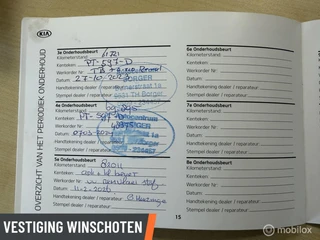 KIA
OVERZICHT VAN HET PERIODIEK ONDERHOUD
3e Onderhoudsbeurt
Kilometerstand :
Kenteken : PT-597-D
Werkorder Nr :
Datum : 27-10-
Handtekening dealer / reparateur :
Stempel dealer / reparateur :
4e Onderhoudsbeurt
Kilometerstand :
Kenteken :
Werkorder Nr :
Datum :
Handtekening dealer / reparateur :
Stempel dealer / reparateur :
5e Onderhoudsbeurt
Kilometerstand :
Kenteken :
Werkorder Nr :
Datum :
Handtekening dealer / reparateur :
Stempel dealer / reparateur :
6e Onderhoudsbeurt
Kilometerstand :
Kenteken :
Werkorder Nr :
Datum :
Handtekening dealer / reparateur :
Stempel dealer / reparateur :
7e Onderhoudsbeurt
Kilometerstand :
Kenteken :
Werkorder Nr :
Datum :
Handtekening dealer / reparateur :
Stempel dealer / reparateur :
8e Onderhoudsbeurt
Kilometerstand :
Kenteken :
Werkorder Nr :
Datum :
Handtekening dealer / reparateur :
Stempel dealer / reparateur :
15
VESTIGING WINSCHOTEN
mobilox